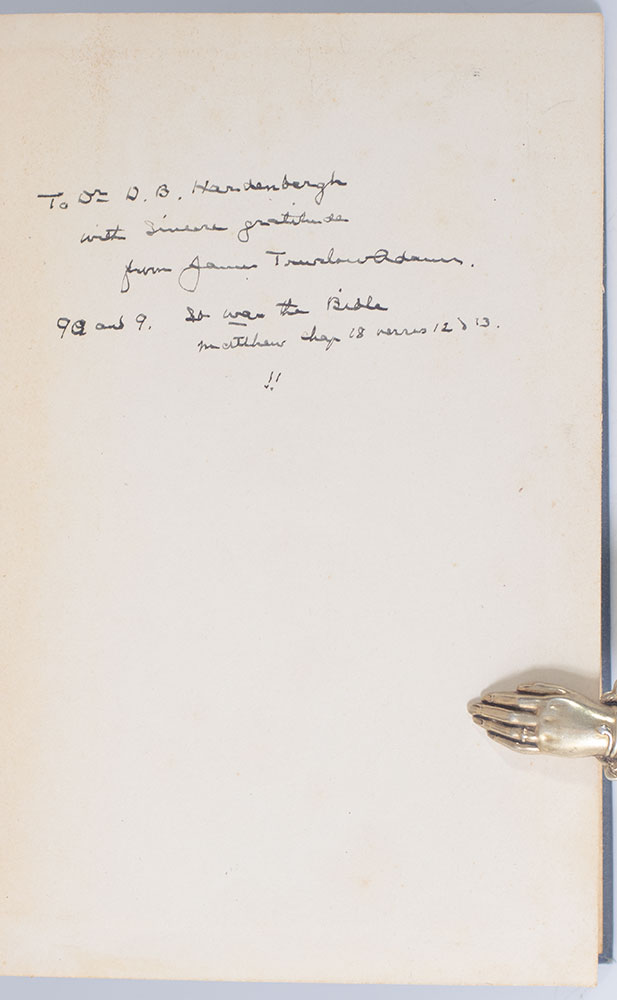 To Dr D. B. Hardenbergh
with sincere gratitude
from James Truslow Adams.
90 and 9. It was the Bible
Matthew chap 18 verses 12 & 13.
!!